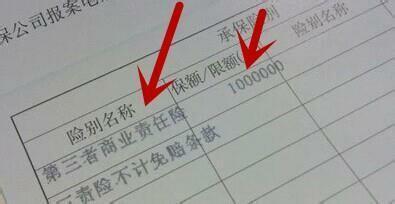 保公司报案电
承保险别
险别名称
保额/限额(
险别名称
第三者商业责任险
1000000
责险不计免赔条款